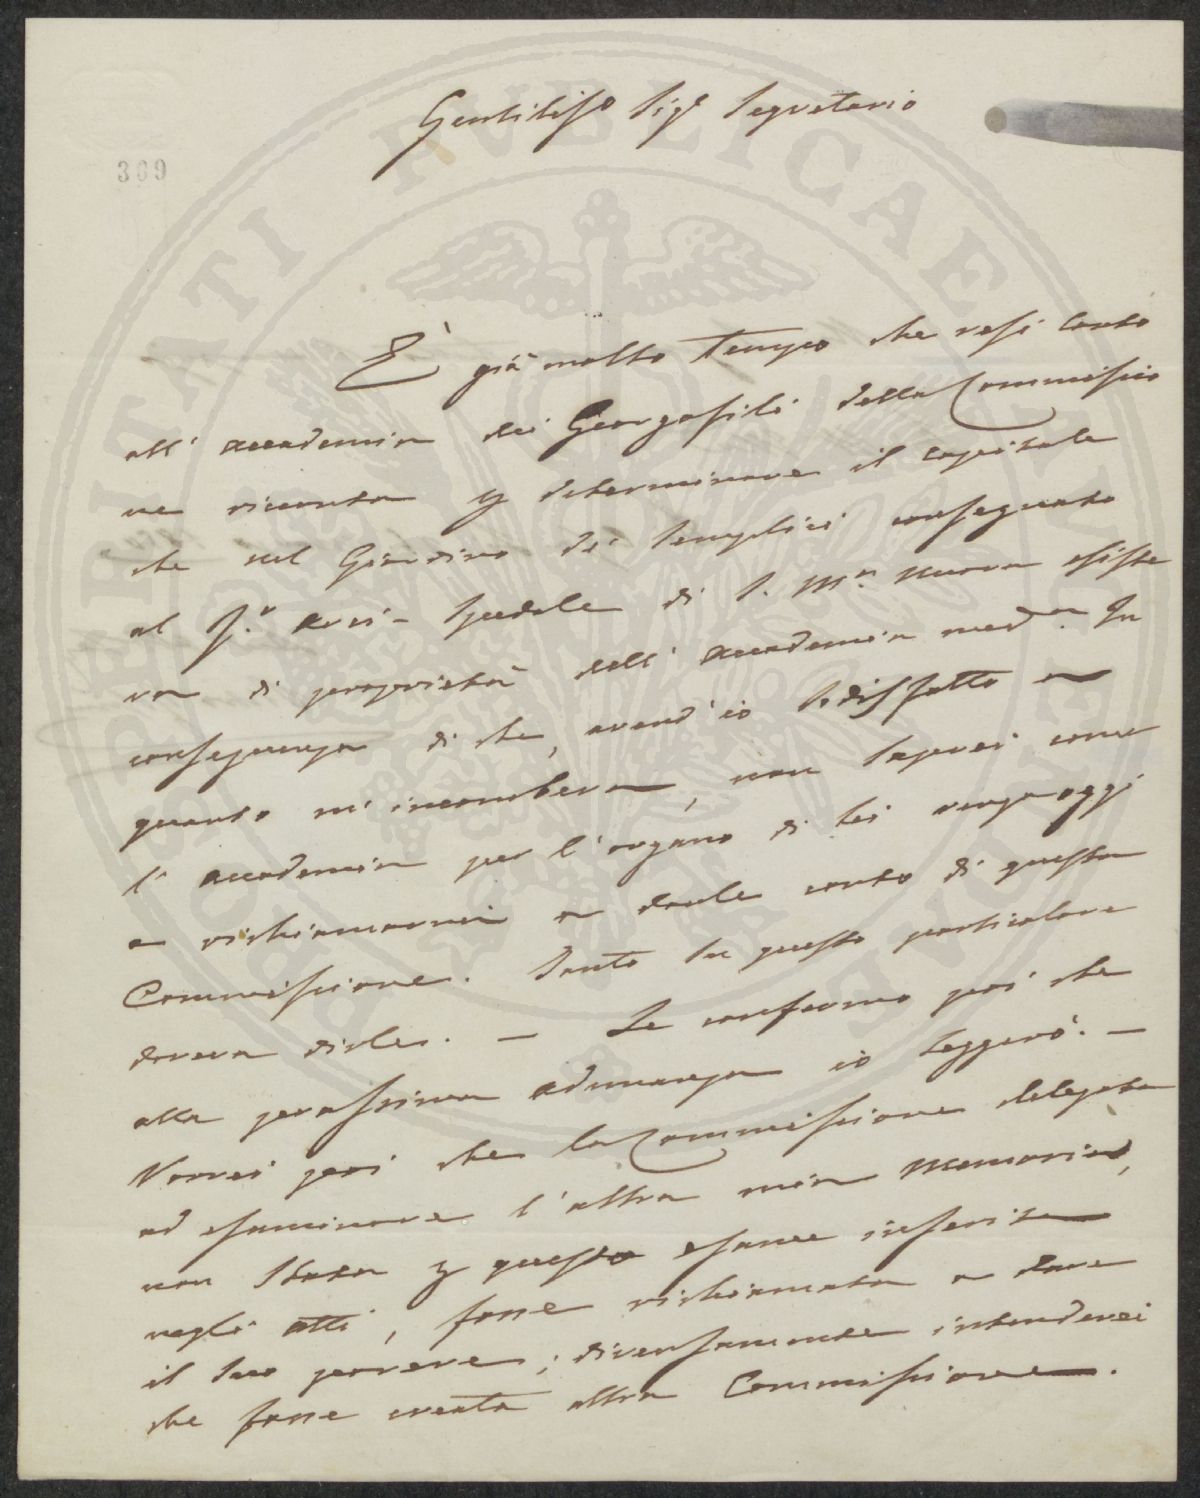 Gentiliss.o Sig.r Segretario
369
È già molto tempo che resi conto
all' accademia dei Georgofili della Commissio
ne ricevuta p determinare il capitale
che sul Giardino dei Semplici consegnato
al R.o Arci-Spedale di S. M.a Nuova esiste
va di proprietà dell' accademia med.a In
conseguenza di che, avend'io sodisfatto a
quanto m' incombeva, non saprei come
l' accademia per l'organo di Lei venga oggi
a richiamarmi a darle conto di questa
Commissione. Tanto su questo particolare
doveva dirle. — Le confermo poi che
alla prossima adunanza io leggerò. —
Vorrei però che la Commissione delegata
ad esaminare l'altra mia Memoria,
non stata p questo esame inserita
negli atti, fosse richiamata a dare
il suo parere; diversamente intenderei
che fosse creata altra Commissione.
PROSPERITATI PVBLICAE AVGENDAE